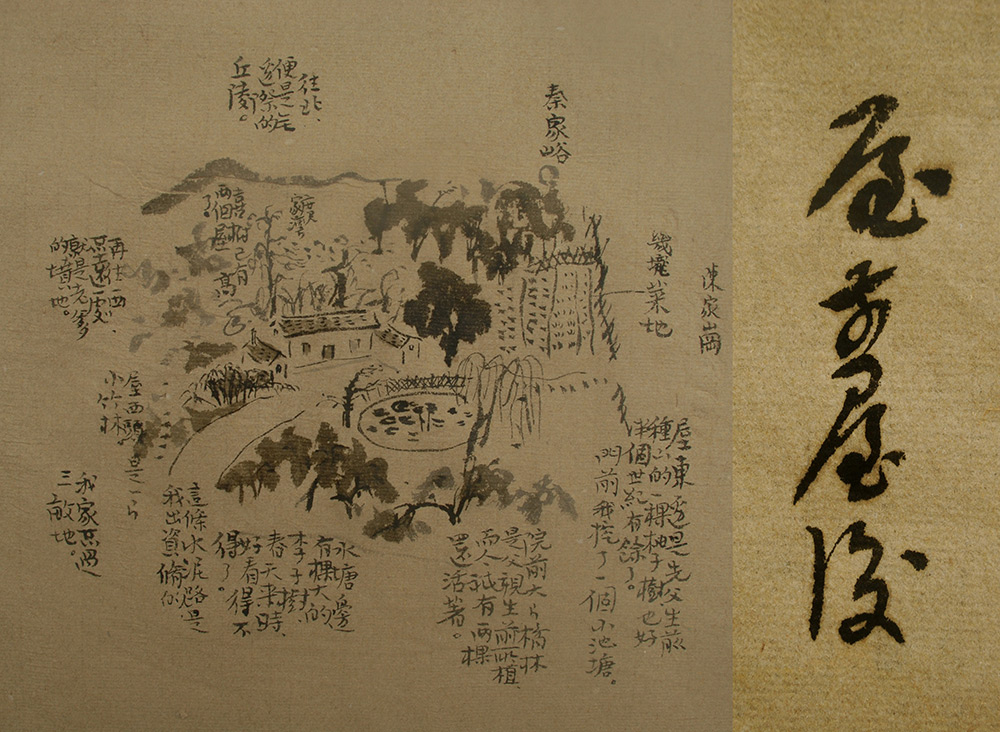 屋前屋後
陳家崗
秦家峪
幾壠菜地
往北、
便是无
邊際的
丘陵。
喜樹已有
兩個屋高
了。
再往西、
不遠處、
就是老
的墳地。
屋東邊是先父生前
種下的一棵柚子樹也好
半個世紀有餘了。
門前我挖了一個小池塘。
院前大片橘林
是父親生前所植
而今衹有两棵
還活著。
水塘邊
有棵大的
李子樹、
春天来時、
好看得不
得了。
這條水泥路是
我出資脩的
屋西頭是一片
小竹林
我家不過
三畝地。